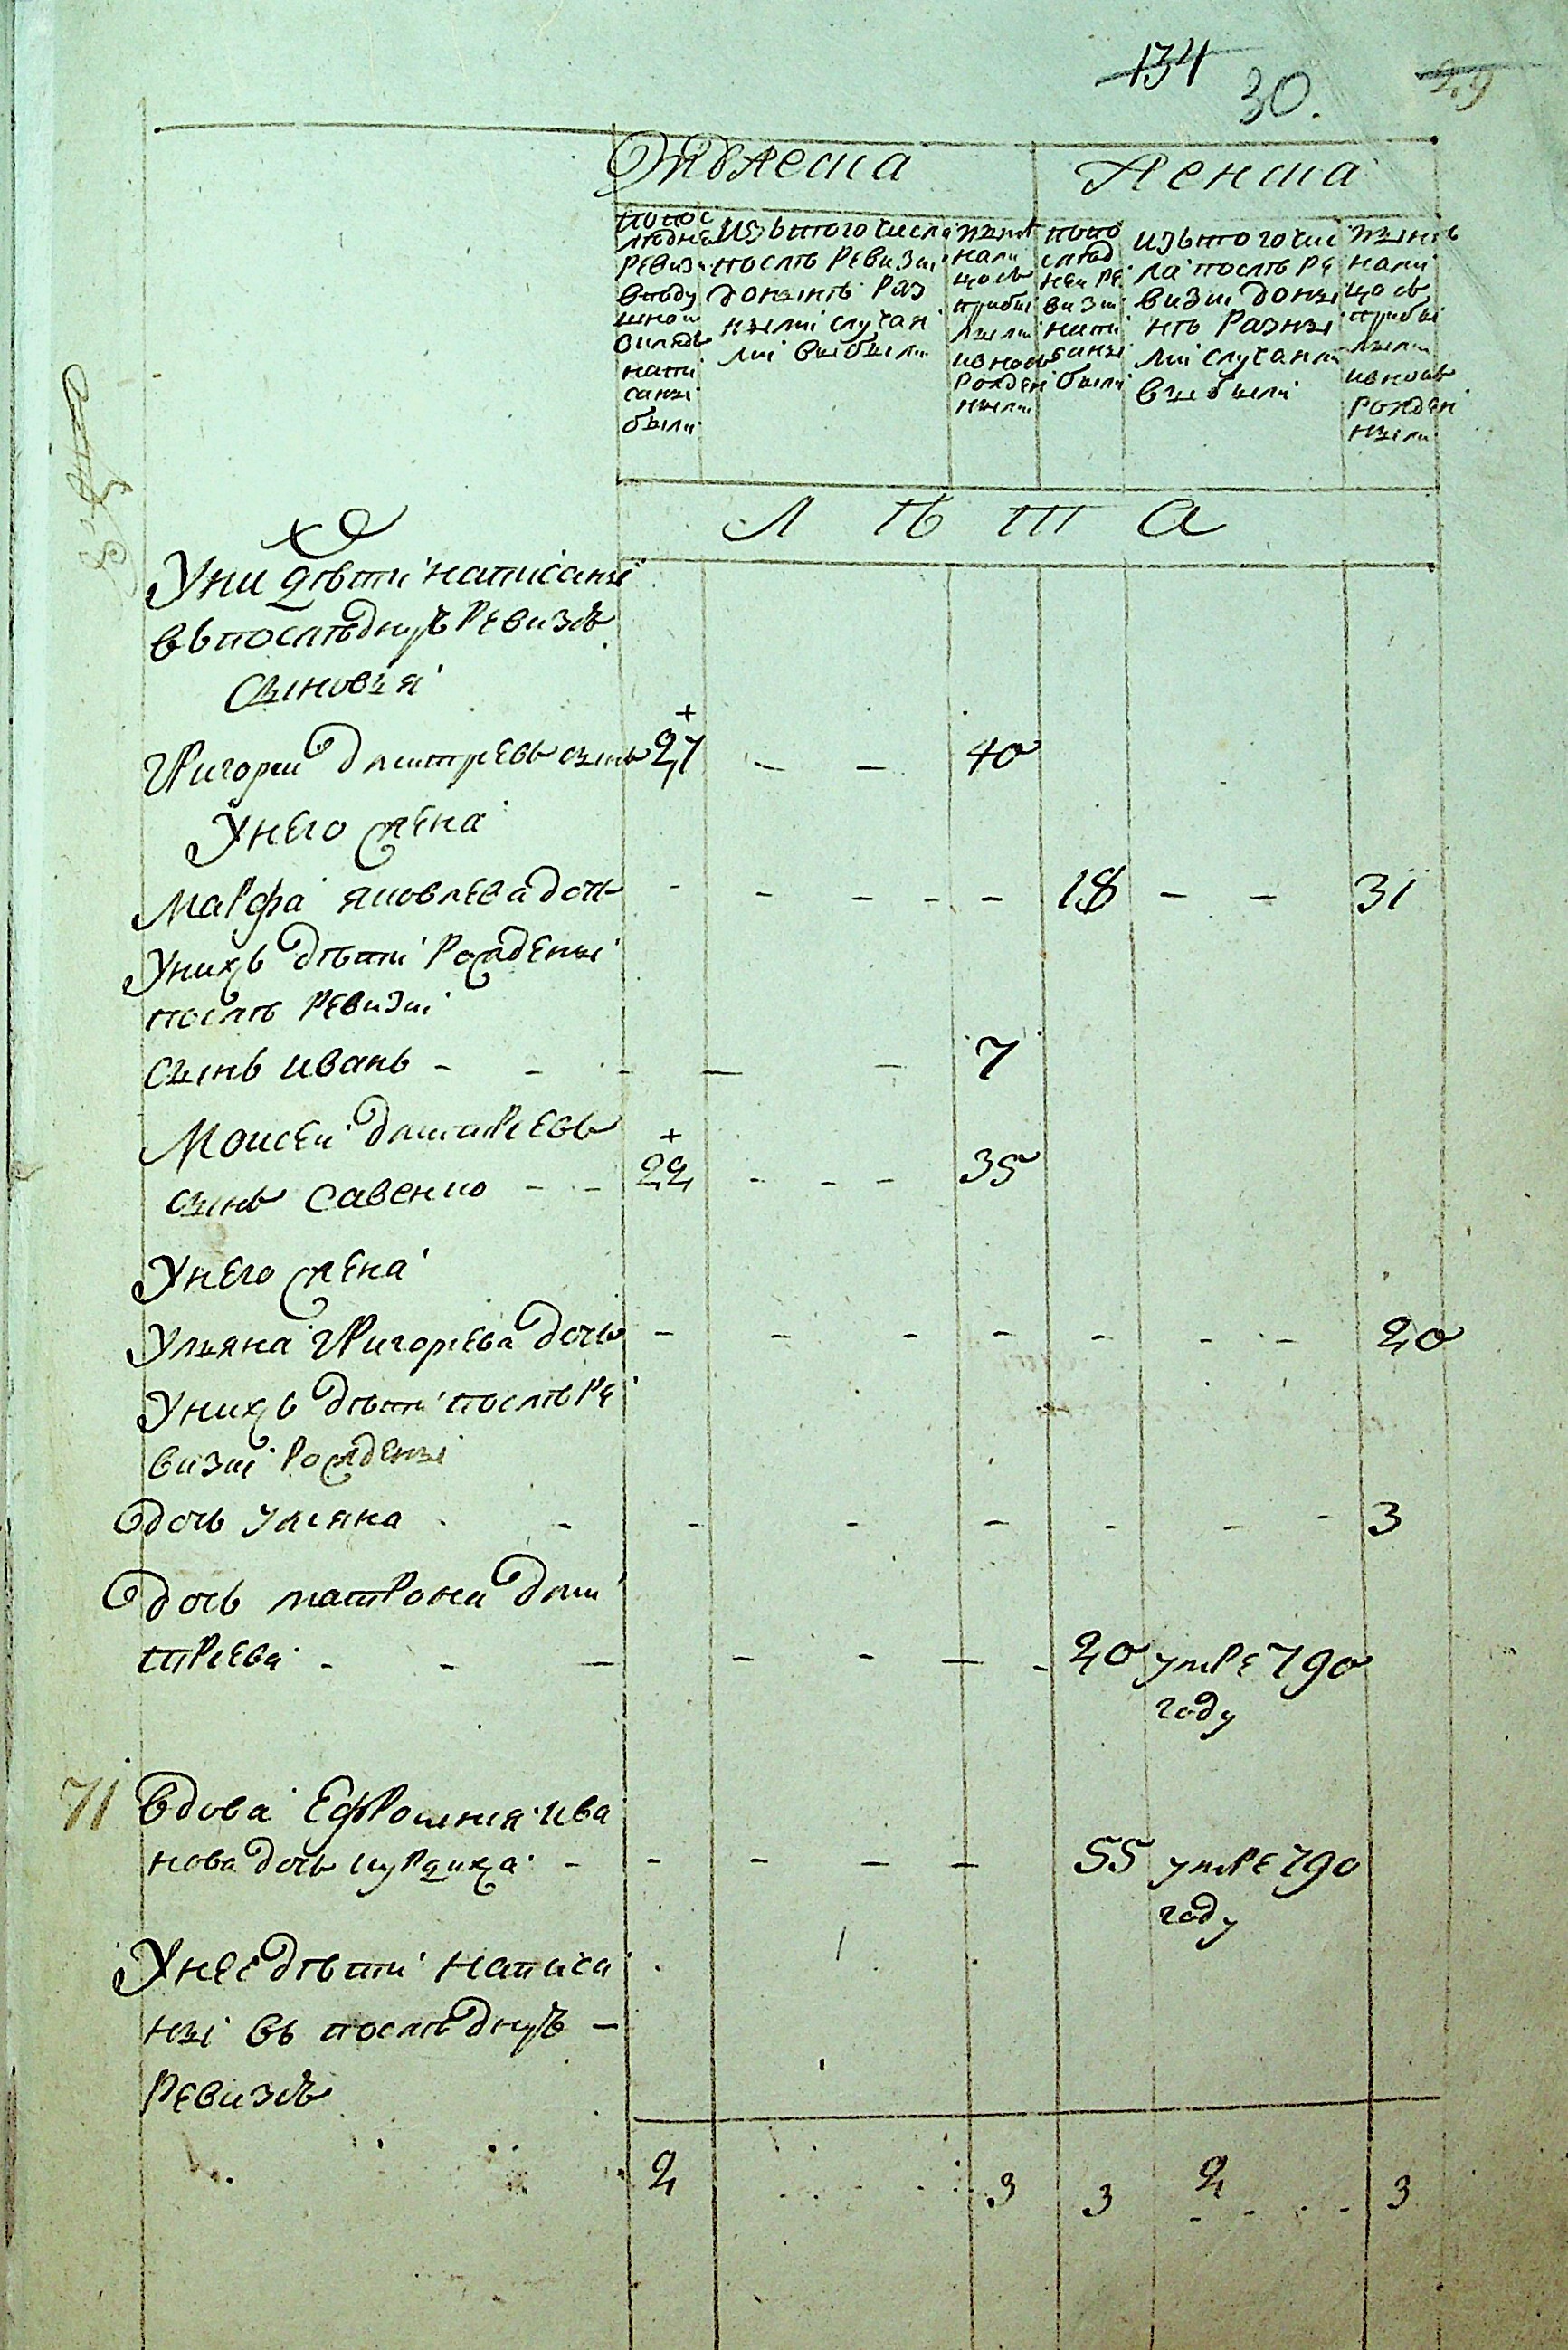 134
30.
29
Мужеска
Женска
попос
ледне
ревизи
вподу
шном
окладе
напи
саны
были
изътого числа
послѣ ревизи
донынѣ раз
ными случаи
ми выбыли
нынѣ
нали
цось
прибы
лыми
ивновь
рожден
ными
попо
слѣд
ней ре
визии
напи
саны
были
изътого чис
ла послѣ ре
визии доны
нѣ разны
ми случаями
выбыли
нынѣ
нали
цось
прибы
лыми
ивновь
рожден
ными
Л ѣ т а
Уни дѣти написаны
въпослѣднуъ ревизъ
сыновья
Григореи дмитревъ сынъ 27 - - 40
Унего жена
Марфа яковлева дочь - - - - - 18 - - 31
Унихъ дѣти рождены
послѣ ревизии
сынъ иванъ - - - - - 7
Моисеи дмитриевъ
сынъ савенко - - 22 - - - 35
Унего жена
Ульяна Григорьева дочь - - - - - - - 20
Унихъ дѣти послѣ ре
визии рождены
дочь ульяна - - - - - - - 3
дочь матрона дми
триева - - - - - - - 20 умре 790
году
71 вдова Ефросиния ива
нова дочь - - - - - 55 умре 790
году
Унее дѣти написа
ны въ послѣднуъ -
ревизъ
2 3 3 2 3